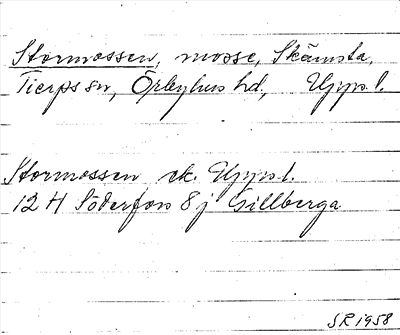 Stormossen, mosse, Skämsta,
Tierps sn, Örbyhus hd, Uppl.
Stormossen ek. Uppsl.
12 H Söderfors 8 j Gillberga
SR 1958